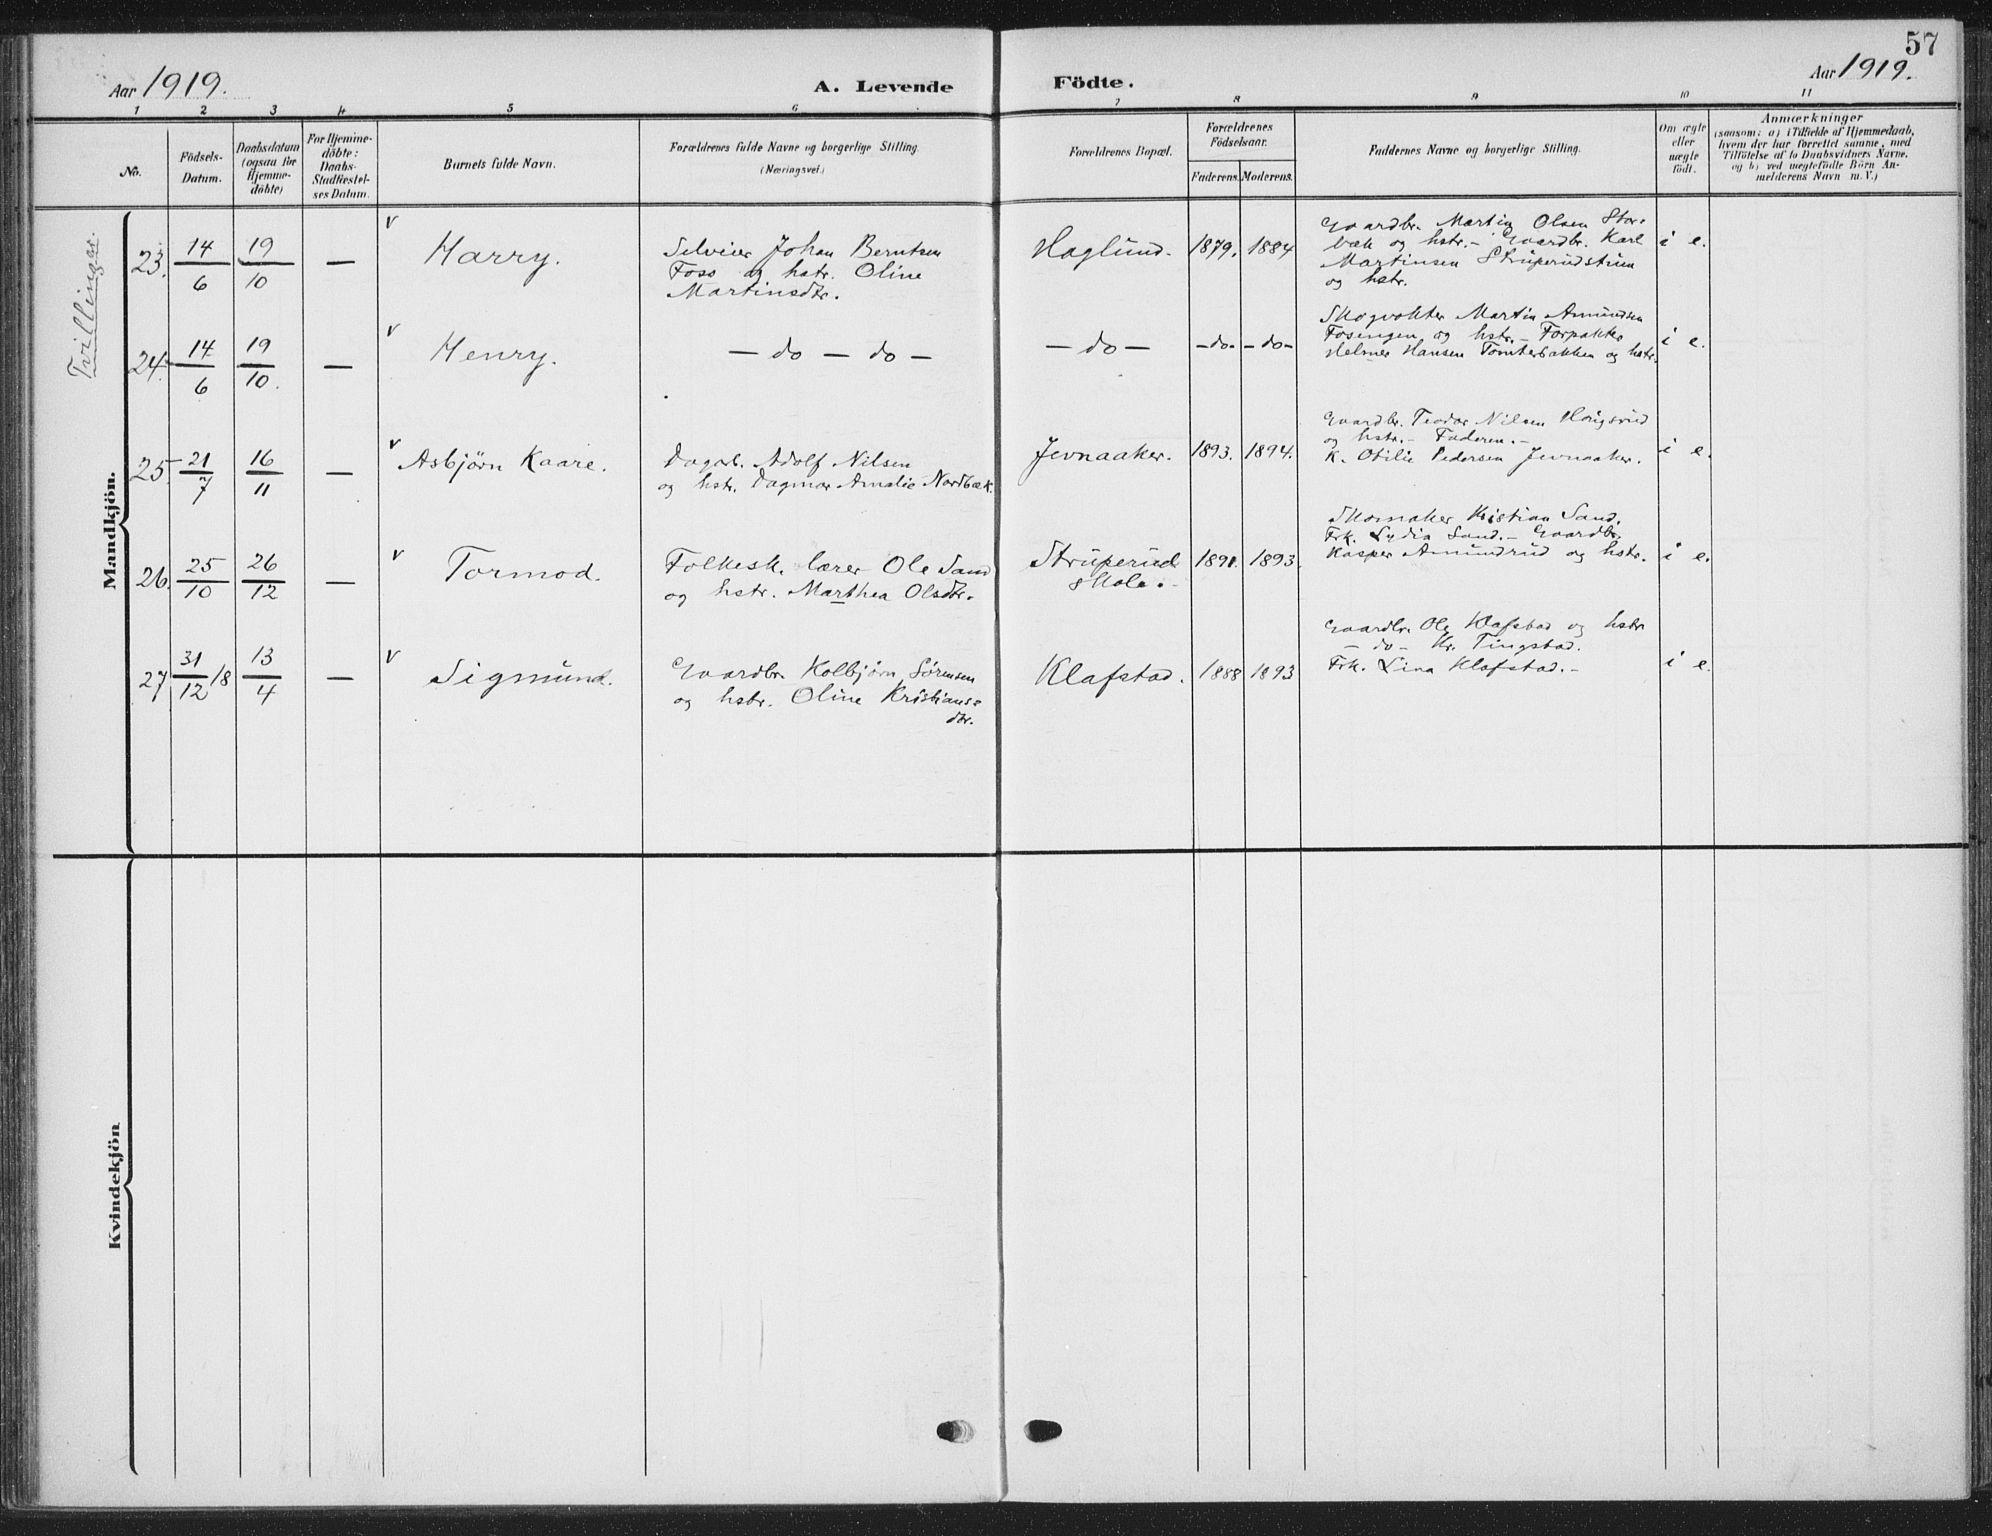 57
Aar 1919.
A. Levende Födte.
Aar 1919.
1 2 3 4 5 6 7 8 9 10 11
No.
Födsels-
Datum.
Daabsdatum
(ogsaa for
Hjemme-
döbte)
For Hjemme-
döbte:
Daabs-
Stadfæstel-
ses Datum.
Barnets fulde Navn.
Forældrenes fulde Navne og borgerlige Stilling.
(Næringsvei.)
Forældrenes Bopæl.
Forældrenes
Födselsaar.
Faderens. Moderens.
Faddernes Navne og borgerlige Stilling.
Om ægte
eller
uægte
födt.
Anmærkninger
(saasom: a) i Tilfælde af Hjemmedaab,
hvem der har forrettet samme, med
Tilföielse af to Daabsvidners Navne,
og b) ved uægtefödte Börn An-
melderens Navn m. V.)
Tvillinger.
Mandkjön.
23. 14/6 19/10 — v Harry.
Selveier Johan Berntsen
Foss og hstr. Oline
Martinsdtr.
Haglund. 1879. 1884
Gaardbr. Martin Olsen Stor-
bæk og hstr. - Gaardbr. Karl
Martinsen Struperudstuen
og hstr.
i e.
24. 14/6 19/10. — v Henry.
— do — do —
— do — - do - - do -
Skogvokter Martin Amundsen
Fosengen og hstr. - Forpakter
Helmer Hansen Tomterbakken og hstr.
i e.
25. 21/7 16/11 — v Asbjørn Kaare.
Dagarb. Adolf Nilsen
og hstr. Dagmar Amalie Nordbæk.
Jevnaaker. 1893. 1894.
Gaardbr. Teodor Nilsen Haugsrud
og hstr. - Faderen. -
K. Otilie Pedersen Jevnaaker.
i e.
26. 25/10 26/12 — v Tormod.
Folkesk. lærer Ole Sand
og hstr. Marthea Olsdtr.
Struperud
skole. - 1891. 1893.
Skomaker Kristian Sand.
Frk. Lydia Sand. - Gaardbr.
Kasper Amundrud og hstr.
i e.
27 31/12 18 13/4 — v Sigmund.
Gaardbr. Kolbjørn Sørensen
og hstr. Oline Kristians-
dtr.
Klafstad. 1888 1893
Gaardbr. Ole Klafstad og hstr
- do - Kr. Tingstad.
Frk. Lina Klafstad. -
i e.
Kvindekjön